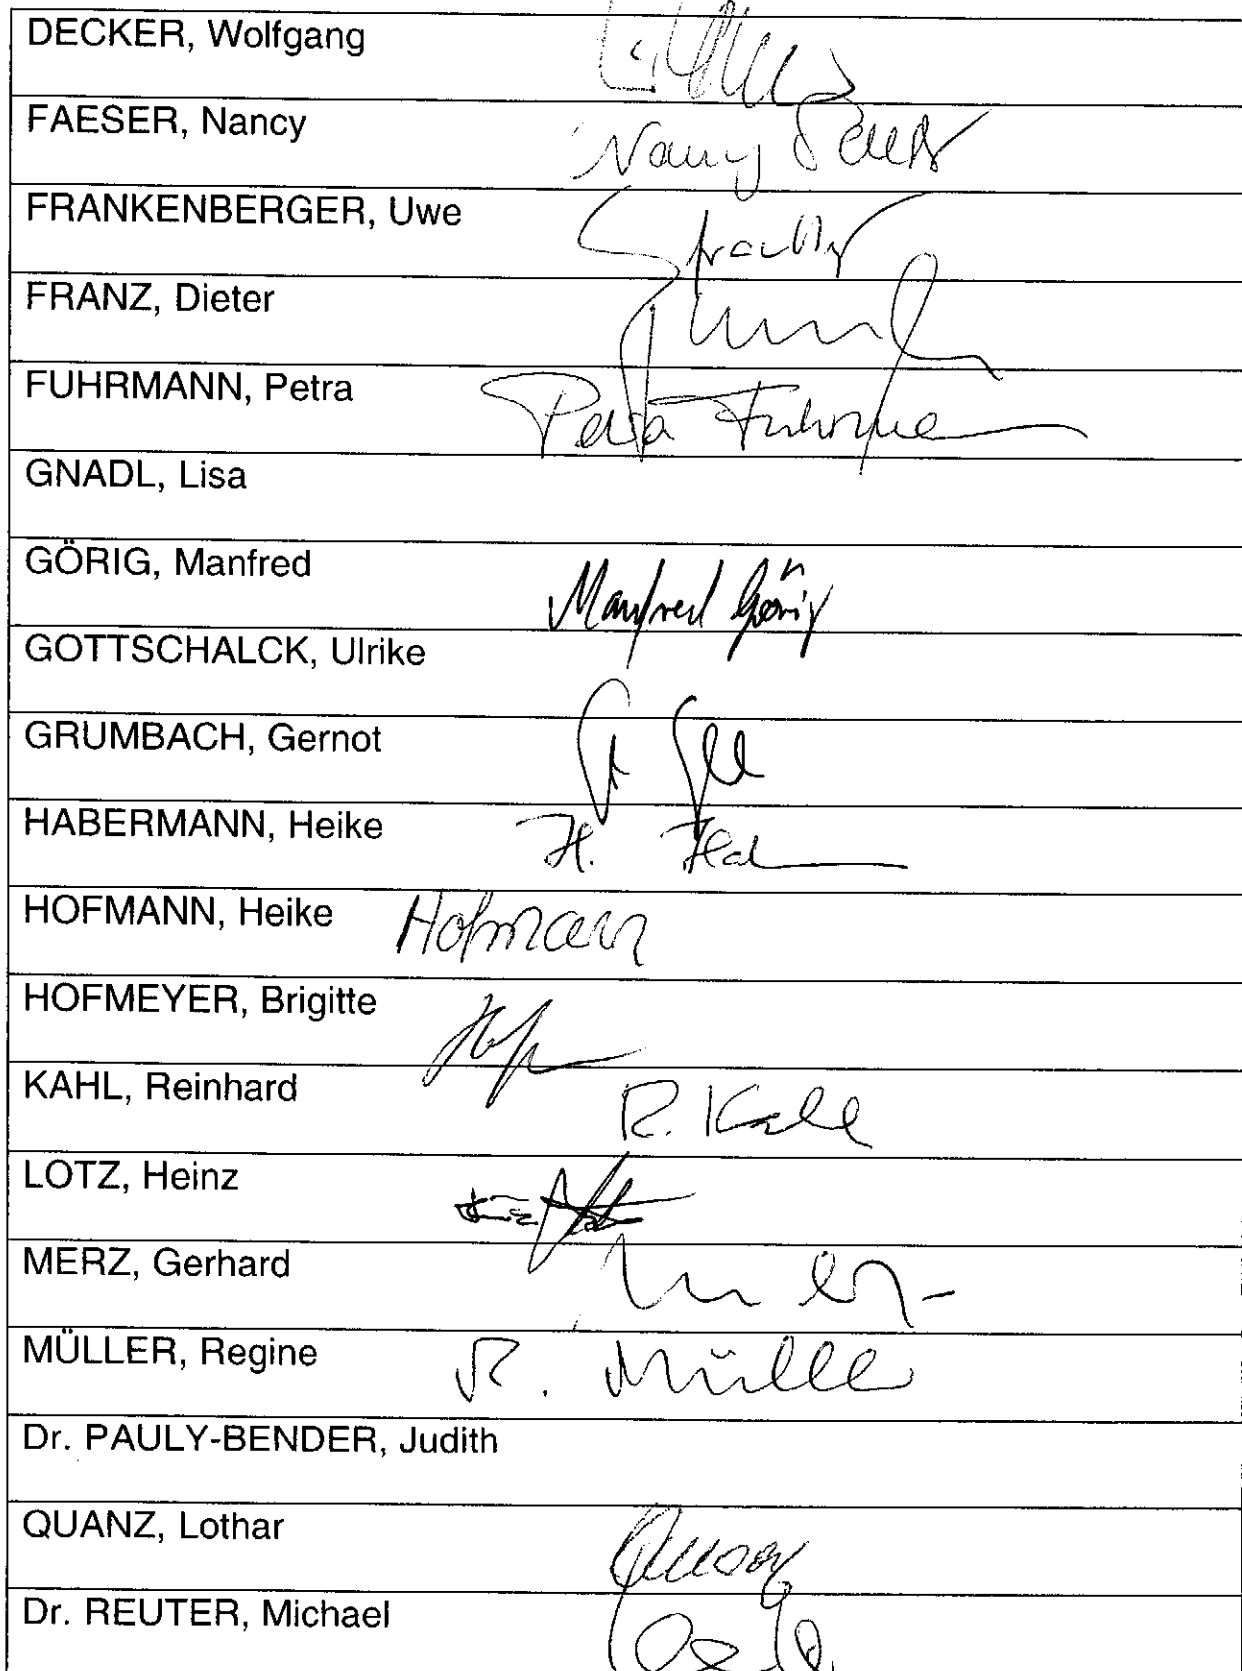 DECKER, Wolfgang
FAESER, Nancy Nancy Faeser
FRANKENBERGER, Uwe
FRANZ, Dieter
FUHRMANN, Petra Petra Fuhrmann
GNADL, Lisa
GÖRIG, Manfred Manfred Görig
GOTTSCHALCK, Ulrike
GRUMBACH, Gernot
HABERMANN, Heike H.
HOFMANN, Heike Hofmann
HOFMEYER, Brigitte
KAHL, Reinhard R. Kahl
LOTZ, Heinz
MERZ, Gerhard
MÜLLER, Regine R. Müller
Dr. PAULY-BENDER, Judith
QUANZ, Lothar
Dr. REUTER, Michael